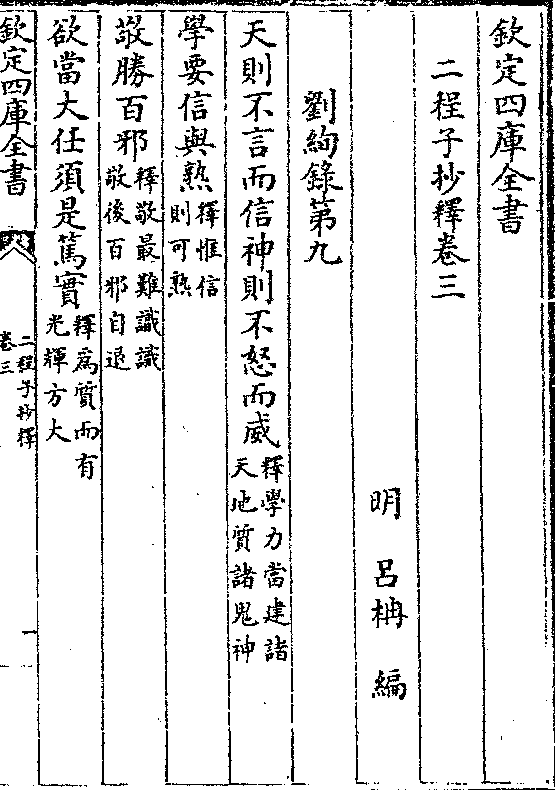 欽定四庫全書
二程子抄釋卷三
明 呂柟 編
劉絢錄第九
天則不言而信神則不怒而威釋學力當建諸天地質諸鬼神
學要信與熟釋惟信則可熟
敬勝百邪釋敬最難識識敬後百邪自退
欲當大任須是篤實釋為質而有光輝方大
欽定四庫全書
二程子抄釋
卷三
一